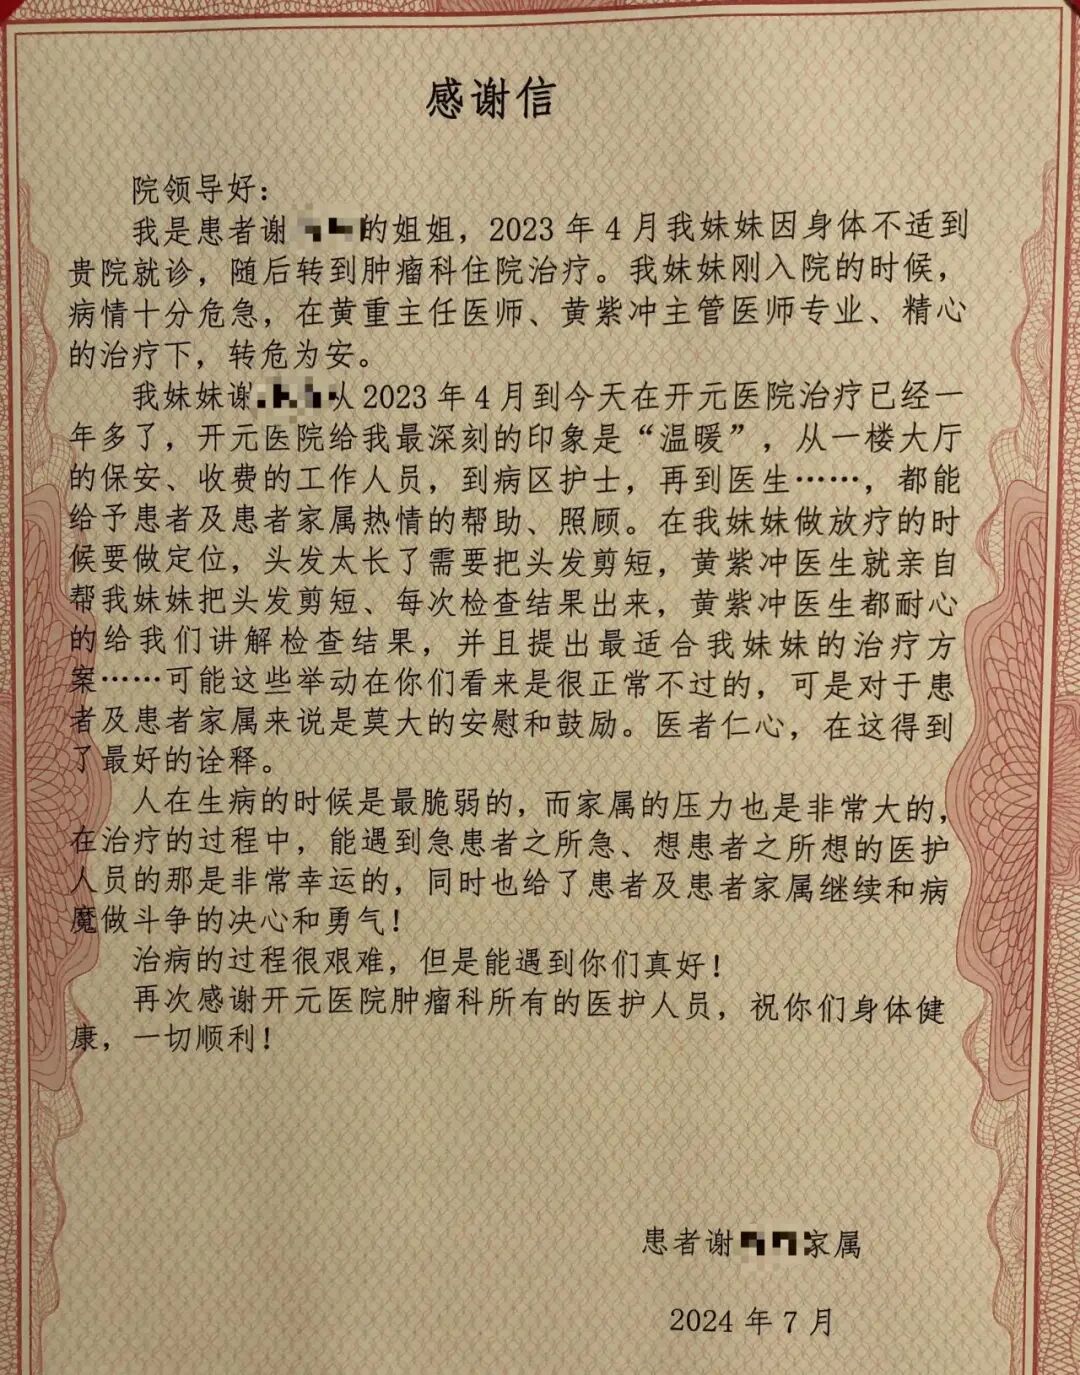 感谢信
院领导好：
我是患者谢 的姐姐，2023 年 4 月我妹妹因身体不适到
贵院就诊，随后转到肿瘤科住院治疗。我妹妹刚入院的时候，
病情十分危急，在黄重主任医师、黄紫冲主管医师专业、精心
的治疗下，转危为安。
我妹妹谢 从 2023 年 4 月到今天在开元医院治疗已经一
年多了，开元医院给我最深刻的印象是“温暖”，从一楼大厅
的保安、收费的工作人员，到病区护士，再到医生……，都能
给予患者及患者家属热情的帮助、照顾。在我妹妹做放疗的时
候要做定位，头发太长了需要把头发剪短，黄紫冲医生就亲自
帮我妹妹把头发剪短、每次检查结果出来，黄紫冲医生都耐心
的给我们讲解检查结果，并且提出最适合我妹妹的治疗方
案……可能这些举动在你们看来是很正常不过的，可是对于患
者及患者家属来说是莫大的安慰和鼓励。医者仁心，在这得到
了最好的诠释。
人在生病的时候是最脆弱的，而家属的压力也是非常大的，
在治疗的过程中，能遇到急患者之所急、想患者之所想的医护
人员的那是非常幸运的，同时也给了患者及患者家属继续和病
魔做斗争的决心和勇气！
治病的过程很艰难，但是能遇到你们真好！
再次感谢开元医院肿瘤科所有的医护人员，祝你们身体健
康，一切顺利！
患者谢 家属
2024 年 7 月